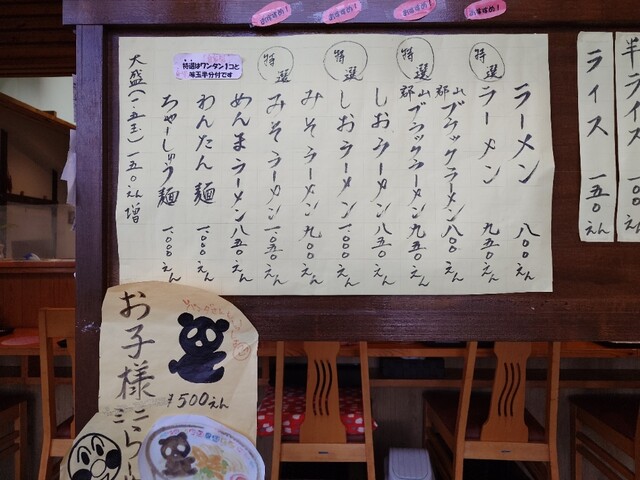 おすすめ!
おすすめ!
おすすめ!
おすすめ!
半ライス
ライス 一五〇えん
ラーメン 八〇〇えん
特選 ラーメン 九五〇えん
郡山ブラックラーメン 八〇〇えん
特選 郡山ブラックラーメン 九五〇えん
しおラーメン 八五〇えん
特選 しおラーメン 一、〇〇〇えん
みそラーメン 九〇〇えん
特選 みそラーメン 一、〇五〇えん
めんまラーメン 八五〇えん
わんたん麺 一、〇〇〇えん
ちゃーしゅう麺 一、〇〇〇えん
大盛(一.五玉)一五〇えん増
特選はワンタン1コと
味玉半分付です
お子様ミニらーめん
¥500えん